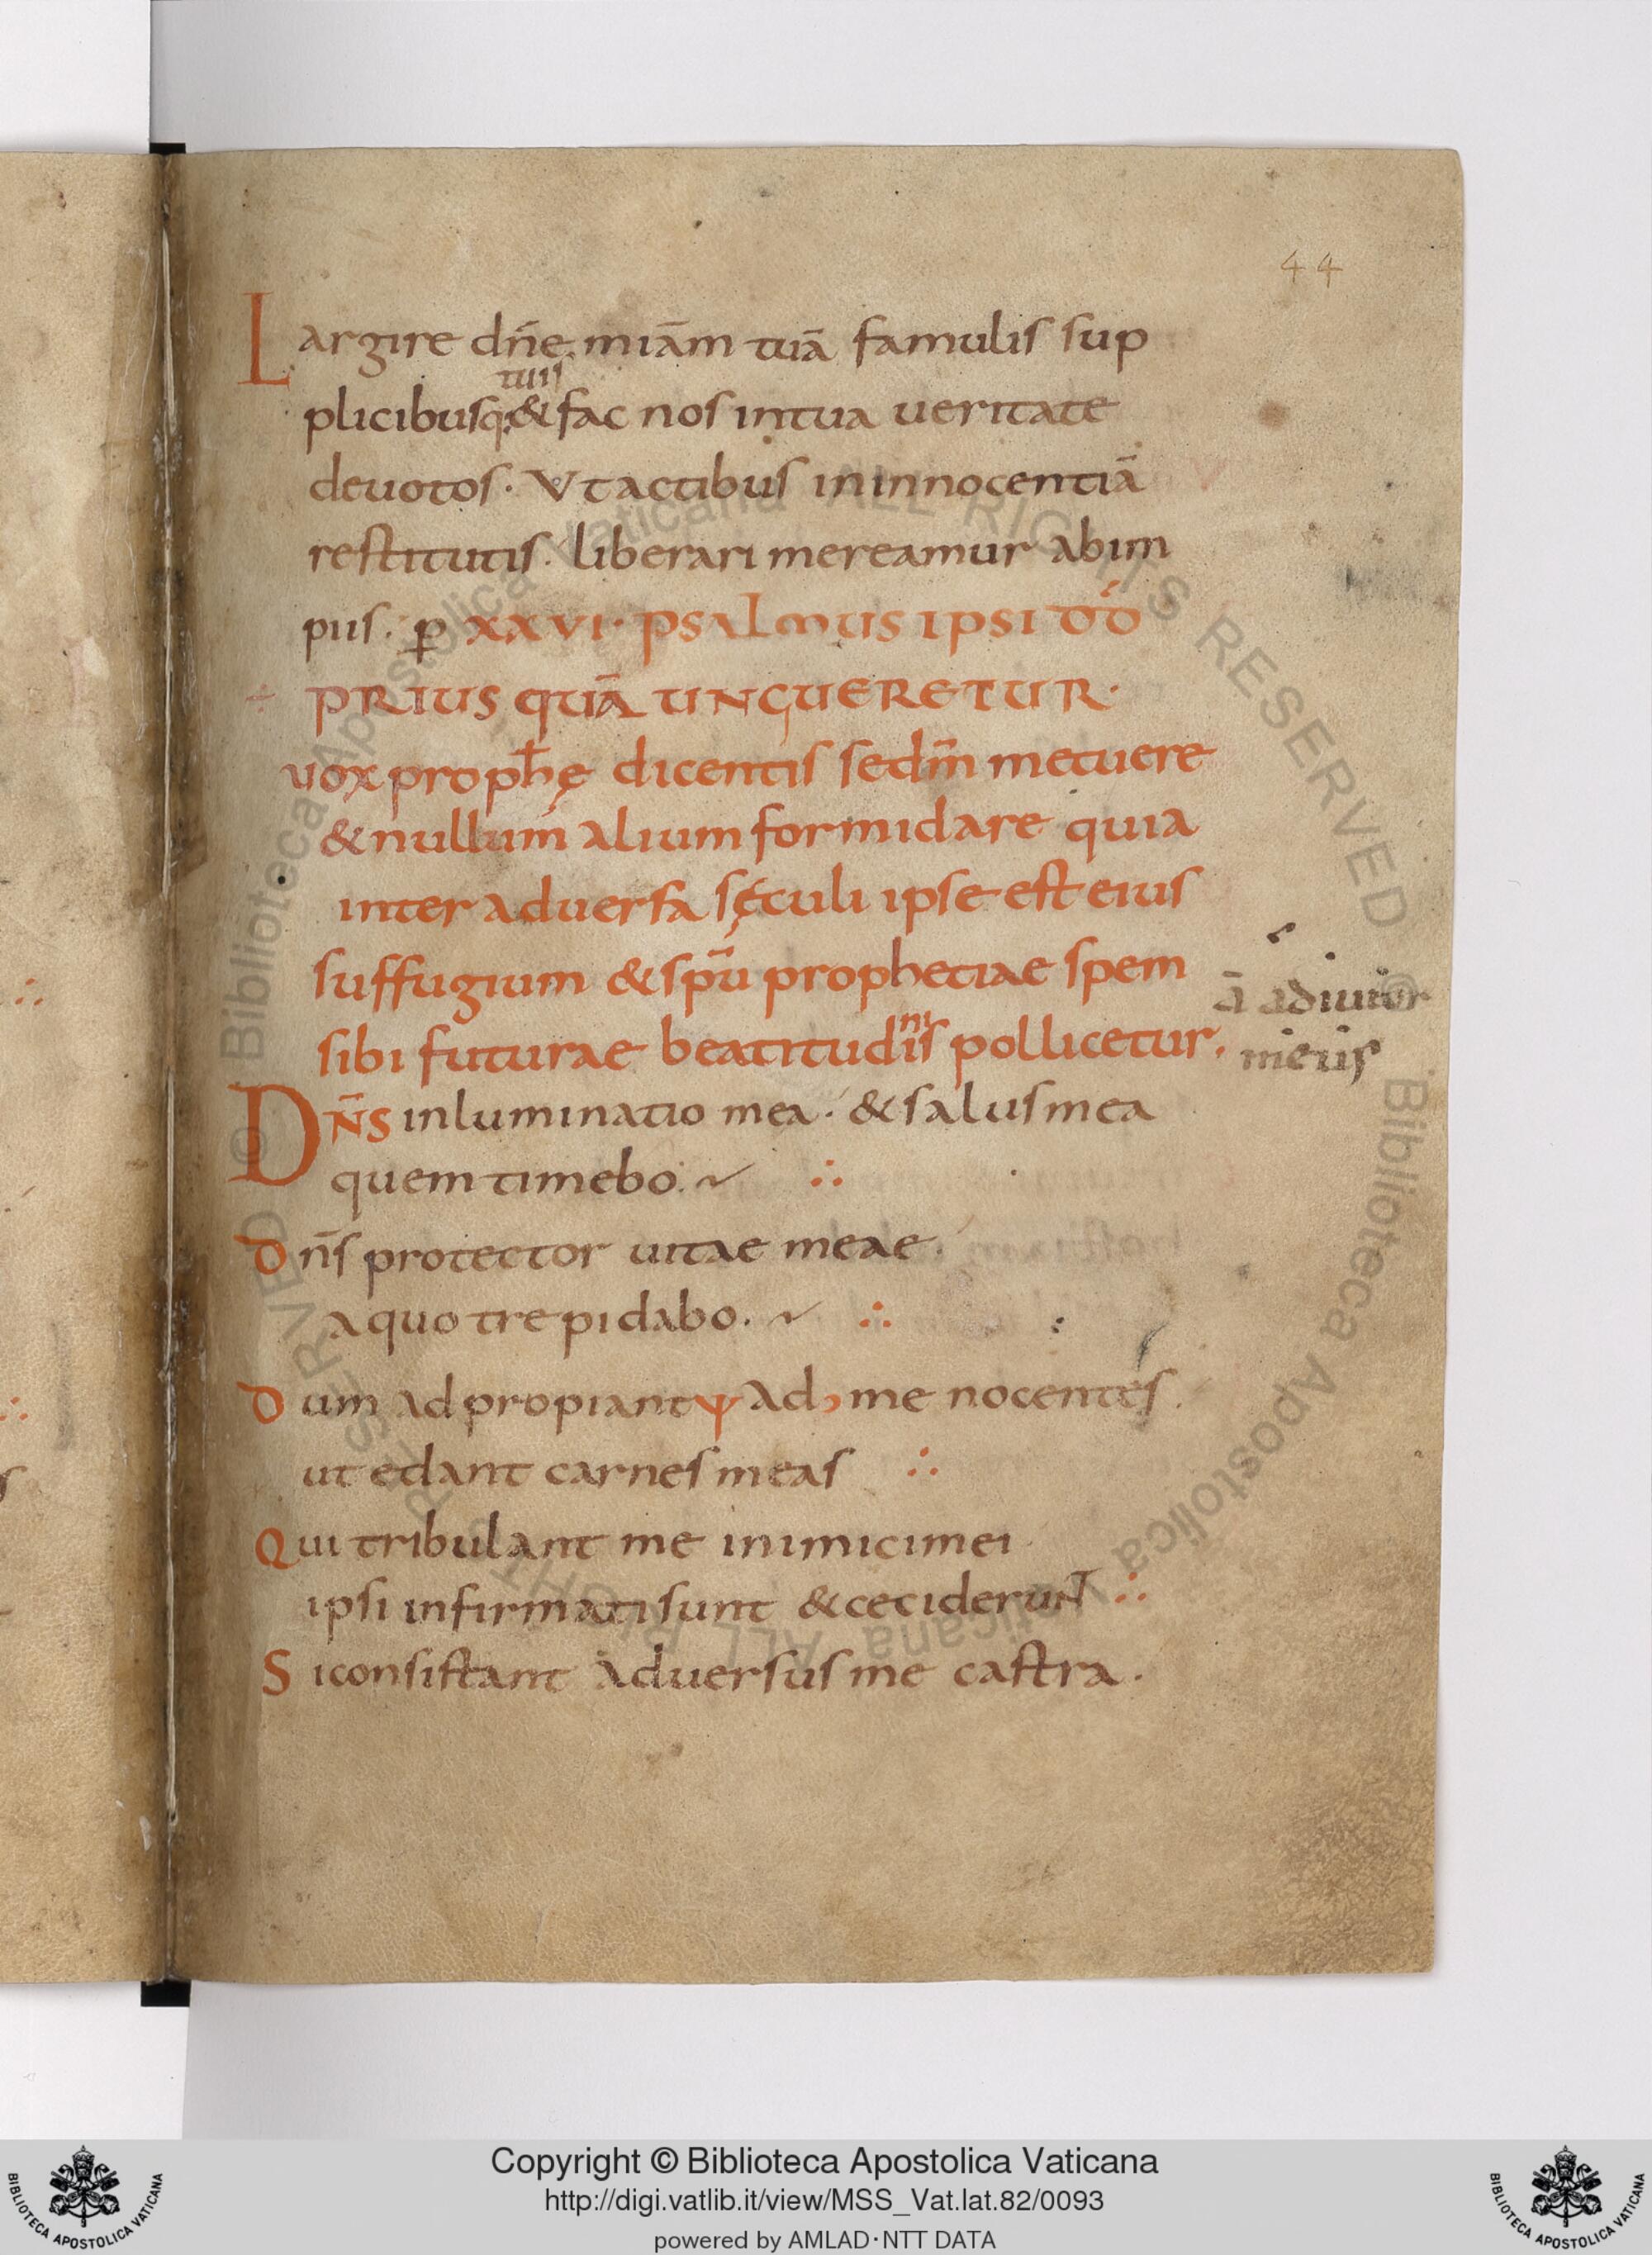 44
Largire dn̄e miām tuā famulis sup
tuis
plicibusq:& fac nos intua ueritate
deuotos. Vt actibus ininnocentiā
restitutis. liberari mereamur abim
piis. ꝑ XXVI. PSALMUS IPSI DD̄
÷ PRIUS QUĀ UNGUERETUR.
uox proph̄ę dicentis sedm̄ metuere
& nullum alium formidare quia
inter aduersa sęculi ipse est eius
suffugium & spū prophetiae spem
ā adiutor
ni
sibi futurae beatitudis pollicetur.
meus
DN̄S inluminatio mea. & salus mea
quem timebo. ∴
dn̄s protector uitae meae.
aquo trepidabo. ∴
dum adpropiant ad me nocentes.
ut edant carnes meas ∴
Qui tribulant me inimici mei
ipsi infirmati sunt & ceciderunt ∴
Si consistant aduersus me castra.
Copyright © Biblioteca Apostolica Vaticana
http://digi.vatlib.it/view/MSS_Vat.lat.82/0093
powered by AMLAD·NTT DATA
BIBLIOTECA APOSTOLICA VATICANA
BIBLIOTECA APOSTOLICA VATICANA
© Biblioteca Apostolica Vaticana ALL RIGHTS RESERVED
© Biblioteca Apostolica Vaticana ALL RIGHTS RESERVED